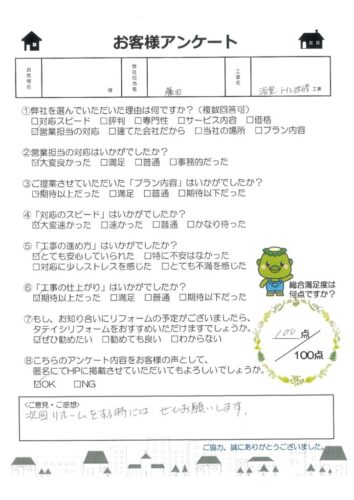 お客様アンケート
お客様名 様 弊社担当者 藤田 工事名 浴室、トイレ改修工事
①弊社を選んでいただいた理由は何ですか？（複数回答可）
□対応スピード □評判 □専門性 □サービス内容 □価格
☑営業担当の対応 □建てた会社だから □当社の場所 □プラン内容
②営業担当の対応はいかがでしたか？
☑大変良かった □満足 □普通 □事務的だった
③ご提案させていただいた「プラン内容」はいかがでしたか？
☑期待以上だった □満足 □普通 □期待以下だった
④「対応のスピード」はいかがでしたか？
☑大変速かった □速かった □普通 □かなり待った
⑤「工事の進め方」はいかがでしたか？
☑とても安心していられた □特に不安はなかった
□対応に少しストレスを感じた □とても不満を感じた
⑥「工事の仕上がり」はいかがでしたか？
☑期待以上だった □満足 □普通 □期待以下だった
総合満足度は
何点ですか？
⑦もし、お知り合いにリフォームの予定がございましたら、
タテイシリフォームをおすすめいただけますでしょうか。
☑ぜひ勧めたい □勧めても良い □わからない
100 点
／100点
⑧こちらのアンケート内容をお客様の声として、
匿名にてHPに掲載させていただいてもよろしいでしょうか。
☑OK □NG
＜ご意見・ご感想＞
次回リホームをする時には ぜひお願いします。
ご協力、誠にありがとうございました。